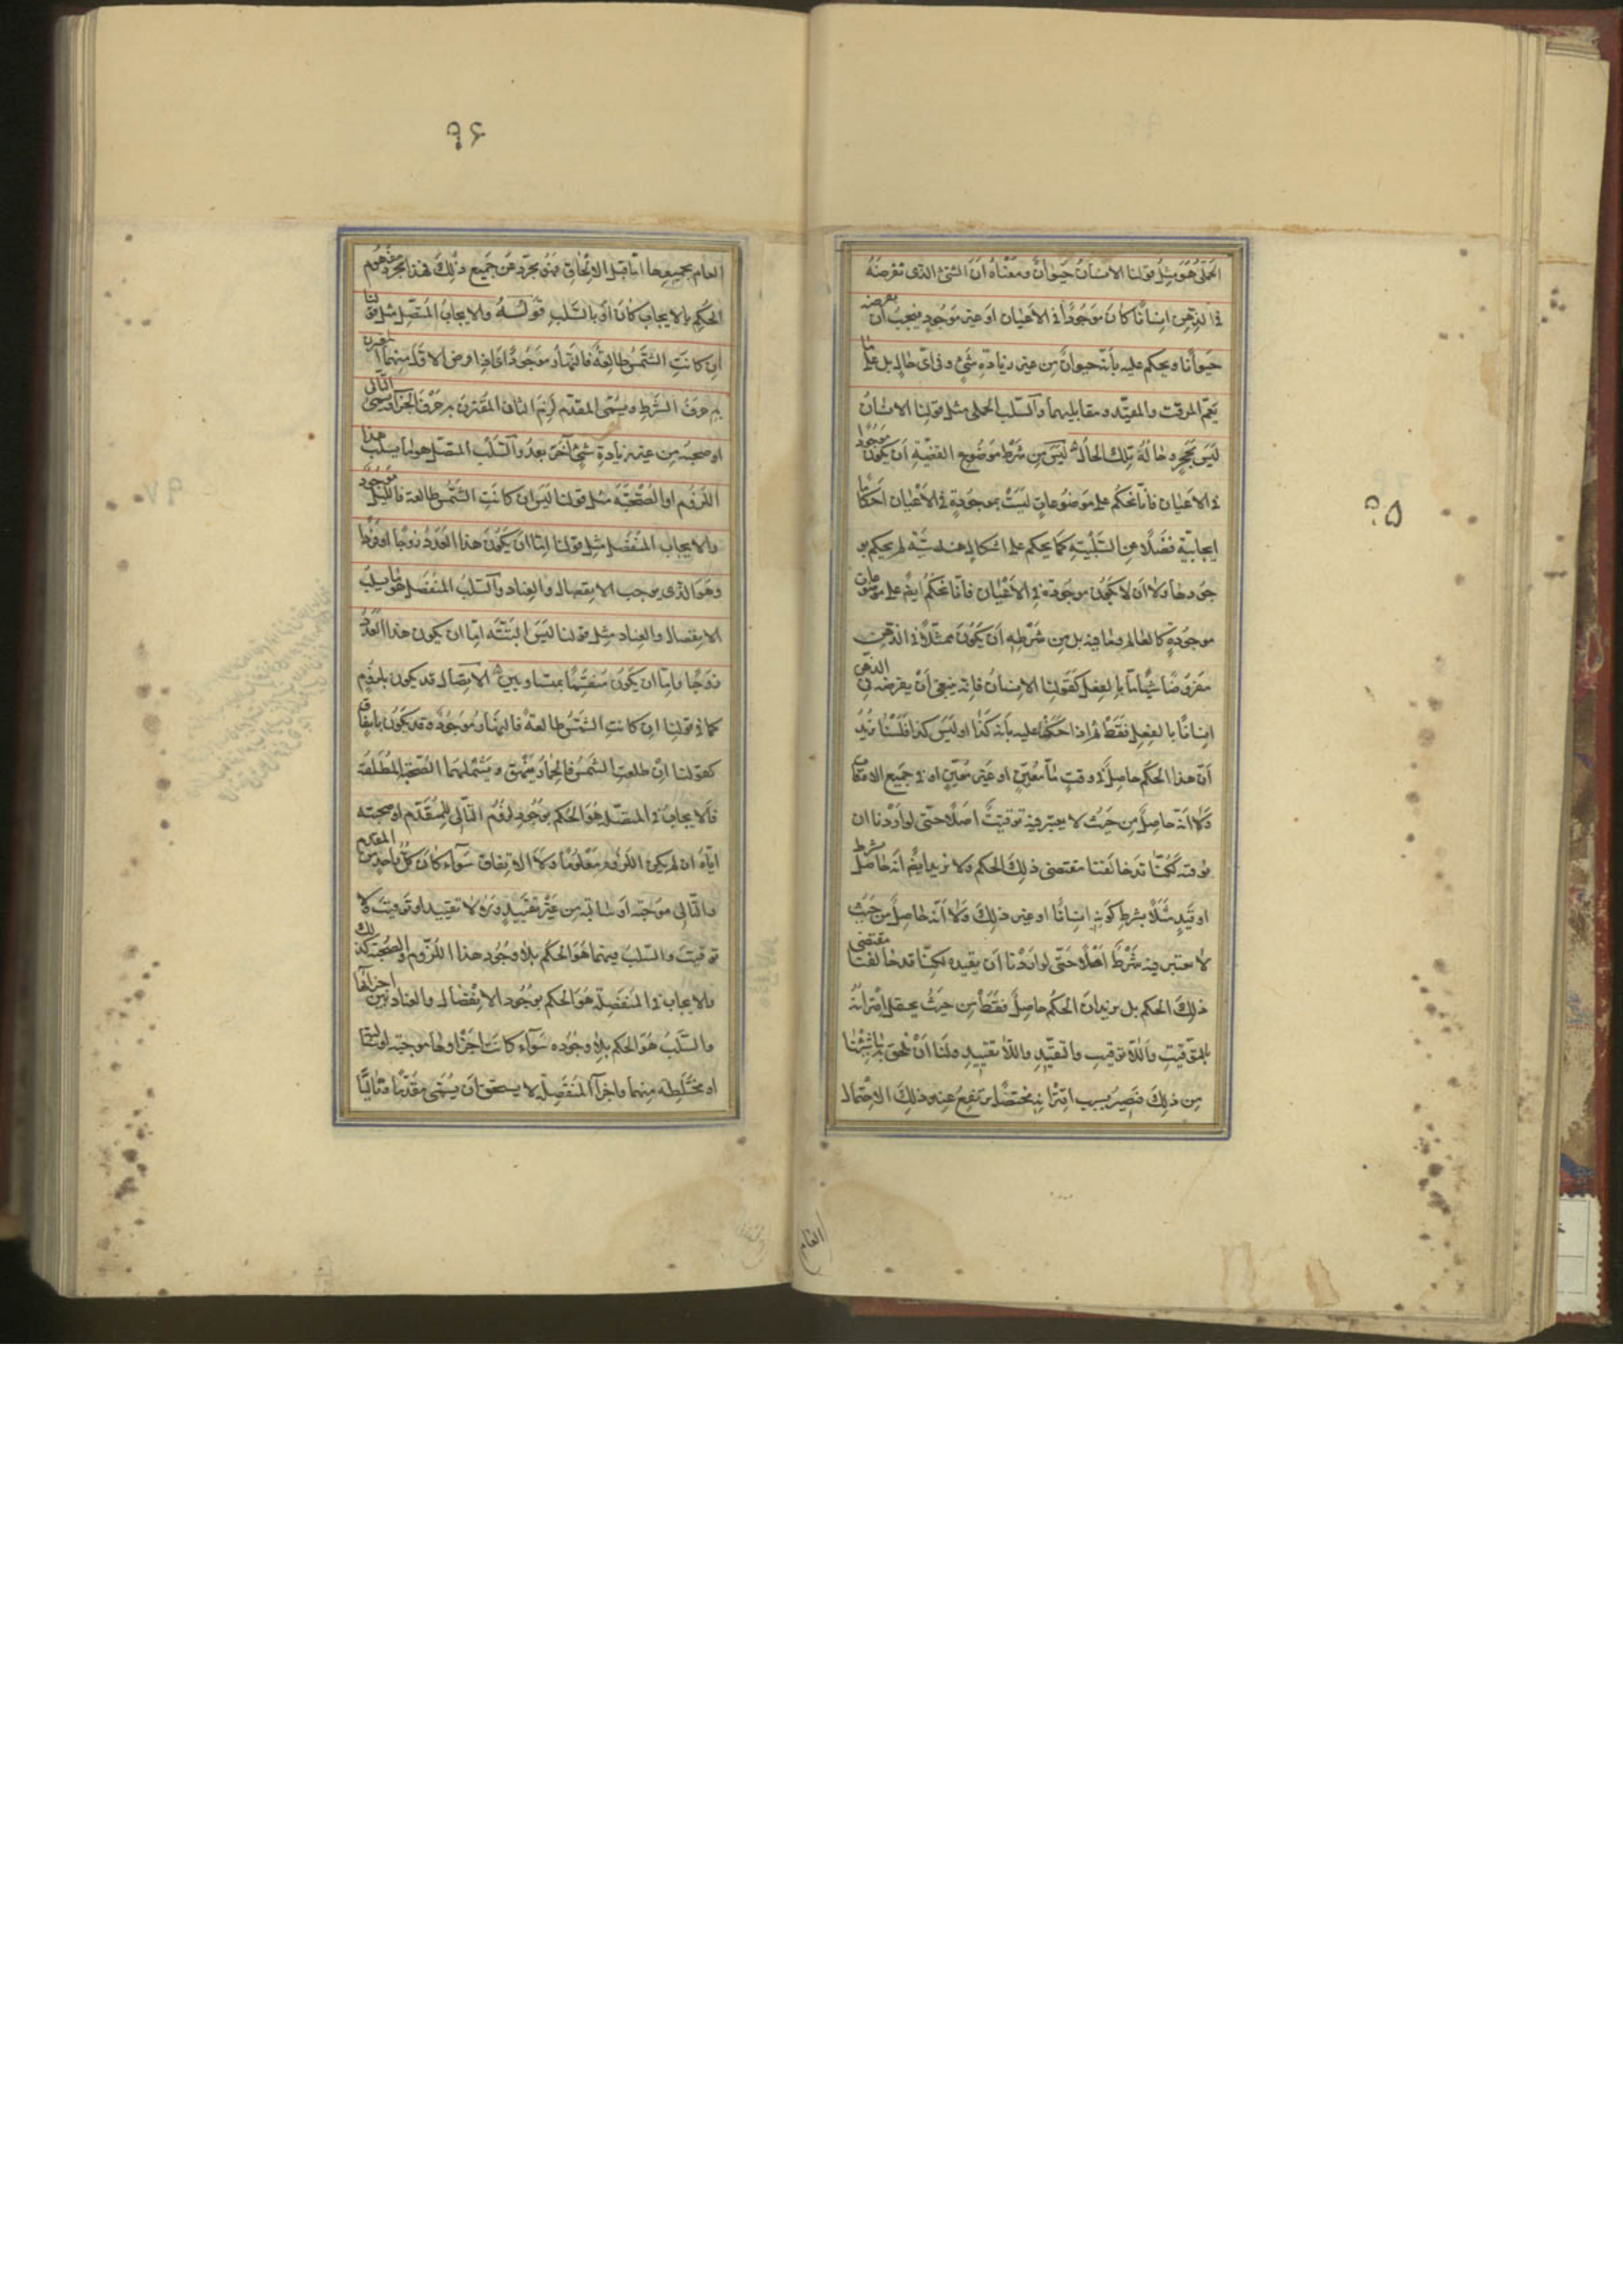 ٩٥
الحملى هو مثل قولنا الانسان حيوان ومعناه ان الشئ الذى نفرضه
فى الذهن انسانا كان موجودا فى الاعيان او غير موجود فيجب ان نفرضه
حيوانا ويحكم عليه بانه حيوان من غير زيادة شئ وفى اى حال بل على ما
يعم الموقت والمقيد ومقابليهما والسلب الحملى مثل قولنا الانسان
ليس بحجر وحاله تلك الحال ليس من شرط موضوع القضية ان يكون موجودا
فى الاعيان فانا نحكم على موضوعات ليست بموجودة فى الاعيان احكاما
ايجابية فضلا عن السلبية كما يحكم على اشكال هندسية لم يحكم بو
جودها ولا ان لا يكون موجودة فى الاعيان فانا نحكم ايضا على موضوعات
موجودة كالعالم وما فيه بل من شرطه ان يكون ممثلا فى الذهن
مفروضا شيئا ما بالفعل كقولنا الانسان فانه ينبغى ان يفرض فى الذهن
انسانا بالفعل فقط ثم اذا حكمنا عليه بانه كذا او ليس كذا فلسنا نريد
ان هذا الحكم حاصل فى وقت ما معين او غير معين او فى جميع الاوقات
ولا انه حاصل من حيث لا يعتبر فيه توقيت اصلا حتى لو اردنا ان
نوقته لكنا قد خالفنا مقتضى ذلك الحكم ولا نريد ايضا انه حاصل بشرط
او قيد مثلا بشرط كونه انسانا او غير ذلك ولا انه حاصل من حيث
لا يعتبر فيه شرط اصلا حتى لو اردنا ان نقيده لكنا قد خالفنا مقتضى
ذلك الحكم بل نريد ان الحكم حاصل فقط من حيث يحتمل اقترانه
بالتوقيت واللا توقيت والتقييد واللا تقييد ولنا ان نلحق به ما شئنا
من ذلك فيصير بسبب اقترانه مختصا يرتفع عنه ذلك الاحتمال
العام
٩٦
العام بجميعها اما قبل الالحاق فهو مجرد عن جميع ذلك فهذا مجرد مفهوم
الحكم بالايجاب كان او بالسلب قوله والايجاب المتصل مثل قولنا
ان كانت الشمس طالعة فالنهار موجود اى اذا فرض الاول منهما المقرون
به حرف الشرط ويسمى المقدم لزمه الثانى المقترن به حرف الجزاء ويسمى التالى
او صحبه من غير زيادة شئ آخر بعد والسلب المتصل هو ما يسلب هذا
اللزوم او الصحبة مثل قولنا ليس ان كانت الشمس طالعة فالليل موجود
والايجاب المنفصل مثل قولنا اما ان يكون هذا العدد زوجا او فردا
وهو الذى يوجب الانفصال والعناد والسلب المنفصل هو ما يسلب
الانفصال والعناد مثل قولنا ليس البتة اما ان يكون هذا العدد
زوجا واما ان يكون منقسما بمتساويين الاتصال قد يكون بلزوم
كما فى قولنا ان كانت الشمس طالعة فالنهار موجود وقد يكون باتفاق
كقولنا ان طلعت الشمس فالحمار ينهق ويشملهما الصحبة المطلقة
فالايجاب فى المتصل هو الحكم بوجود لزوم التالى للمقدم او صحبته
اياه ان لم يكن اللزوم معلوما ولا الاتفاق سواء كان كل واحد من المقدم
والتالى موجبة او سالبة من غير تقييد ولا لا تقييد او توقيت ولا
توقيت والسلب فيهما هو الحكم بلا وجود هذا اللزوم والصحبة كذلك
والايجاب فى المنفصلة هو الحكم بوجود الانفصال والعناد بين اجزائها
والسلب هو الحكم بلا وجوده سواء كانت اجزاؤها موجبة او سالبة
او مختلطة منهما واجزاء المنفصلة لا يستحق ان يسمى مقدما وتاليا